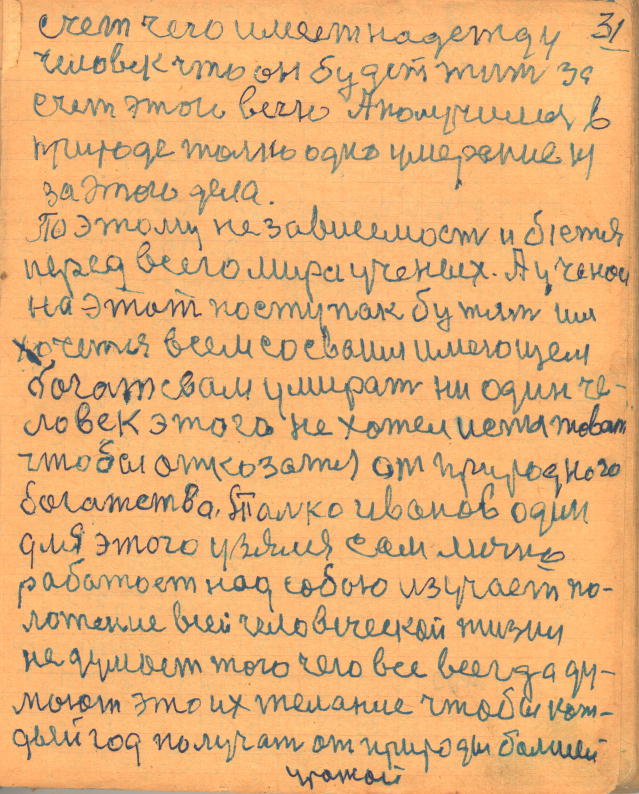 31
счет чего имеет надежду
человек что он будет жит за
счет этого вечно А получился в
природе толко одно умерание и
за этого дела.
По этому независемост и бются
перед всего мира ученых. А ученои
на этот поступак бутят им
хочется всем со сваим имеющем
богатсвам умират ни один че-
ловек этого не хотел испытоват
чтобы отказатся от природного
богатства. Талко иванов один
для этого узялся сам лично
работает над собою изучает по-
ложение всей человеческой жизни
не думает того чего все всегда ду-
мают это их желание чтобы каж-
дый год получат от природы болшей
урожай